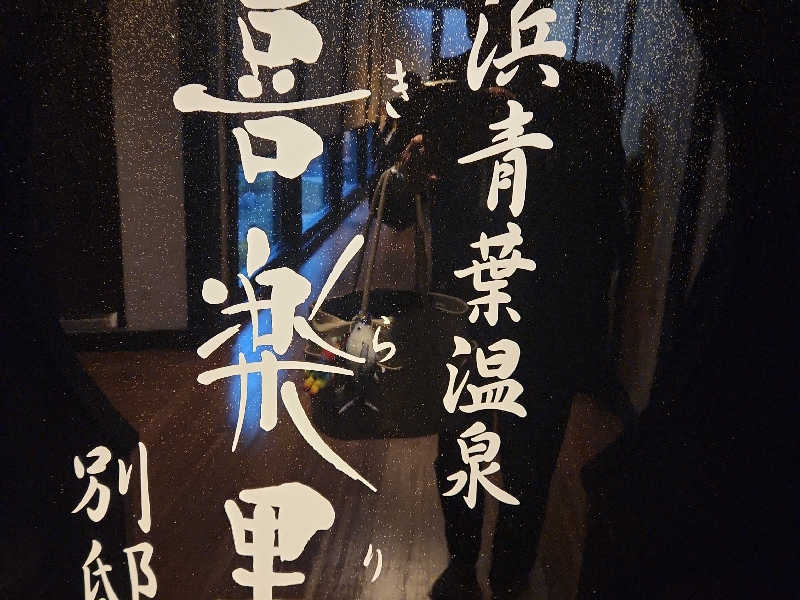 浜青葉温泉
喜楽里
きらり
別邸